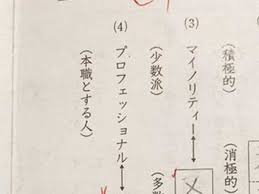 （積極的）（消極的）
(3) マイノリティー
（少数派）（多数
(4) プロフェッショナル
（本職とする人）